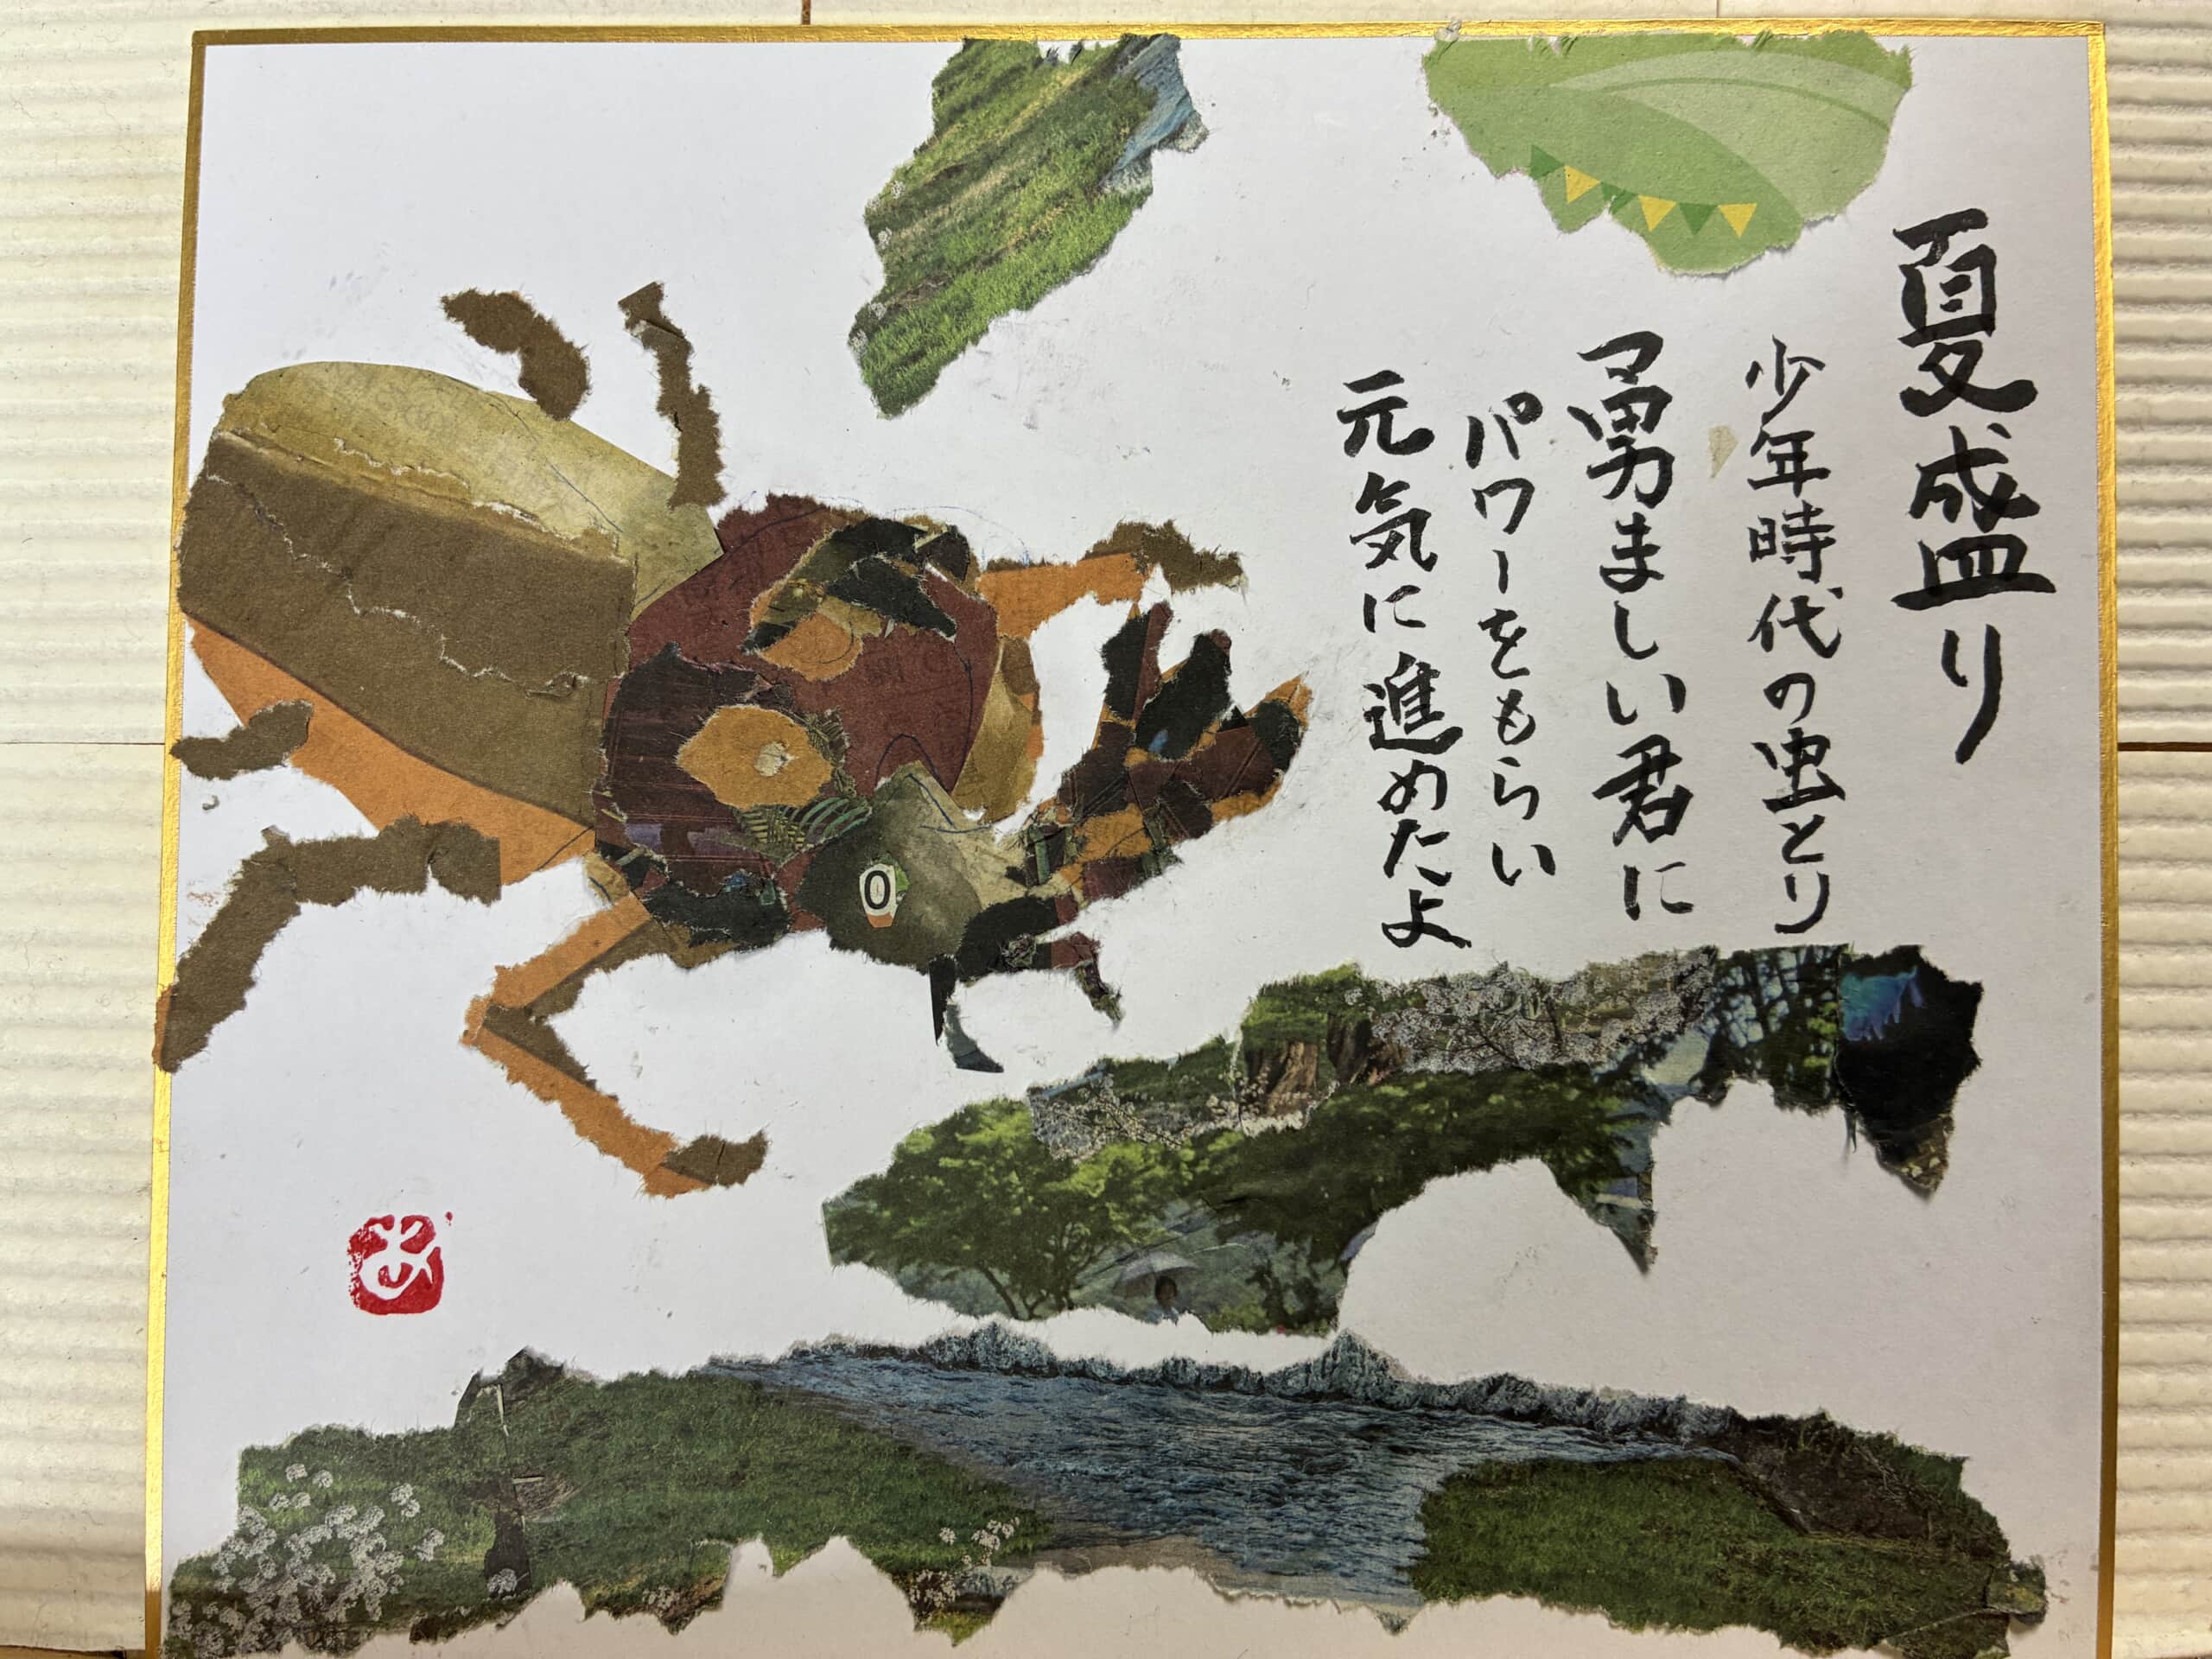 夏盛り
少年時代の虫とり
勇ましい君に
パワーをもらい
元気に進めたよ
0
あ